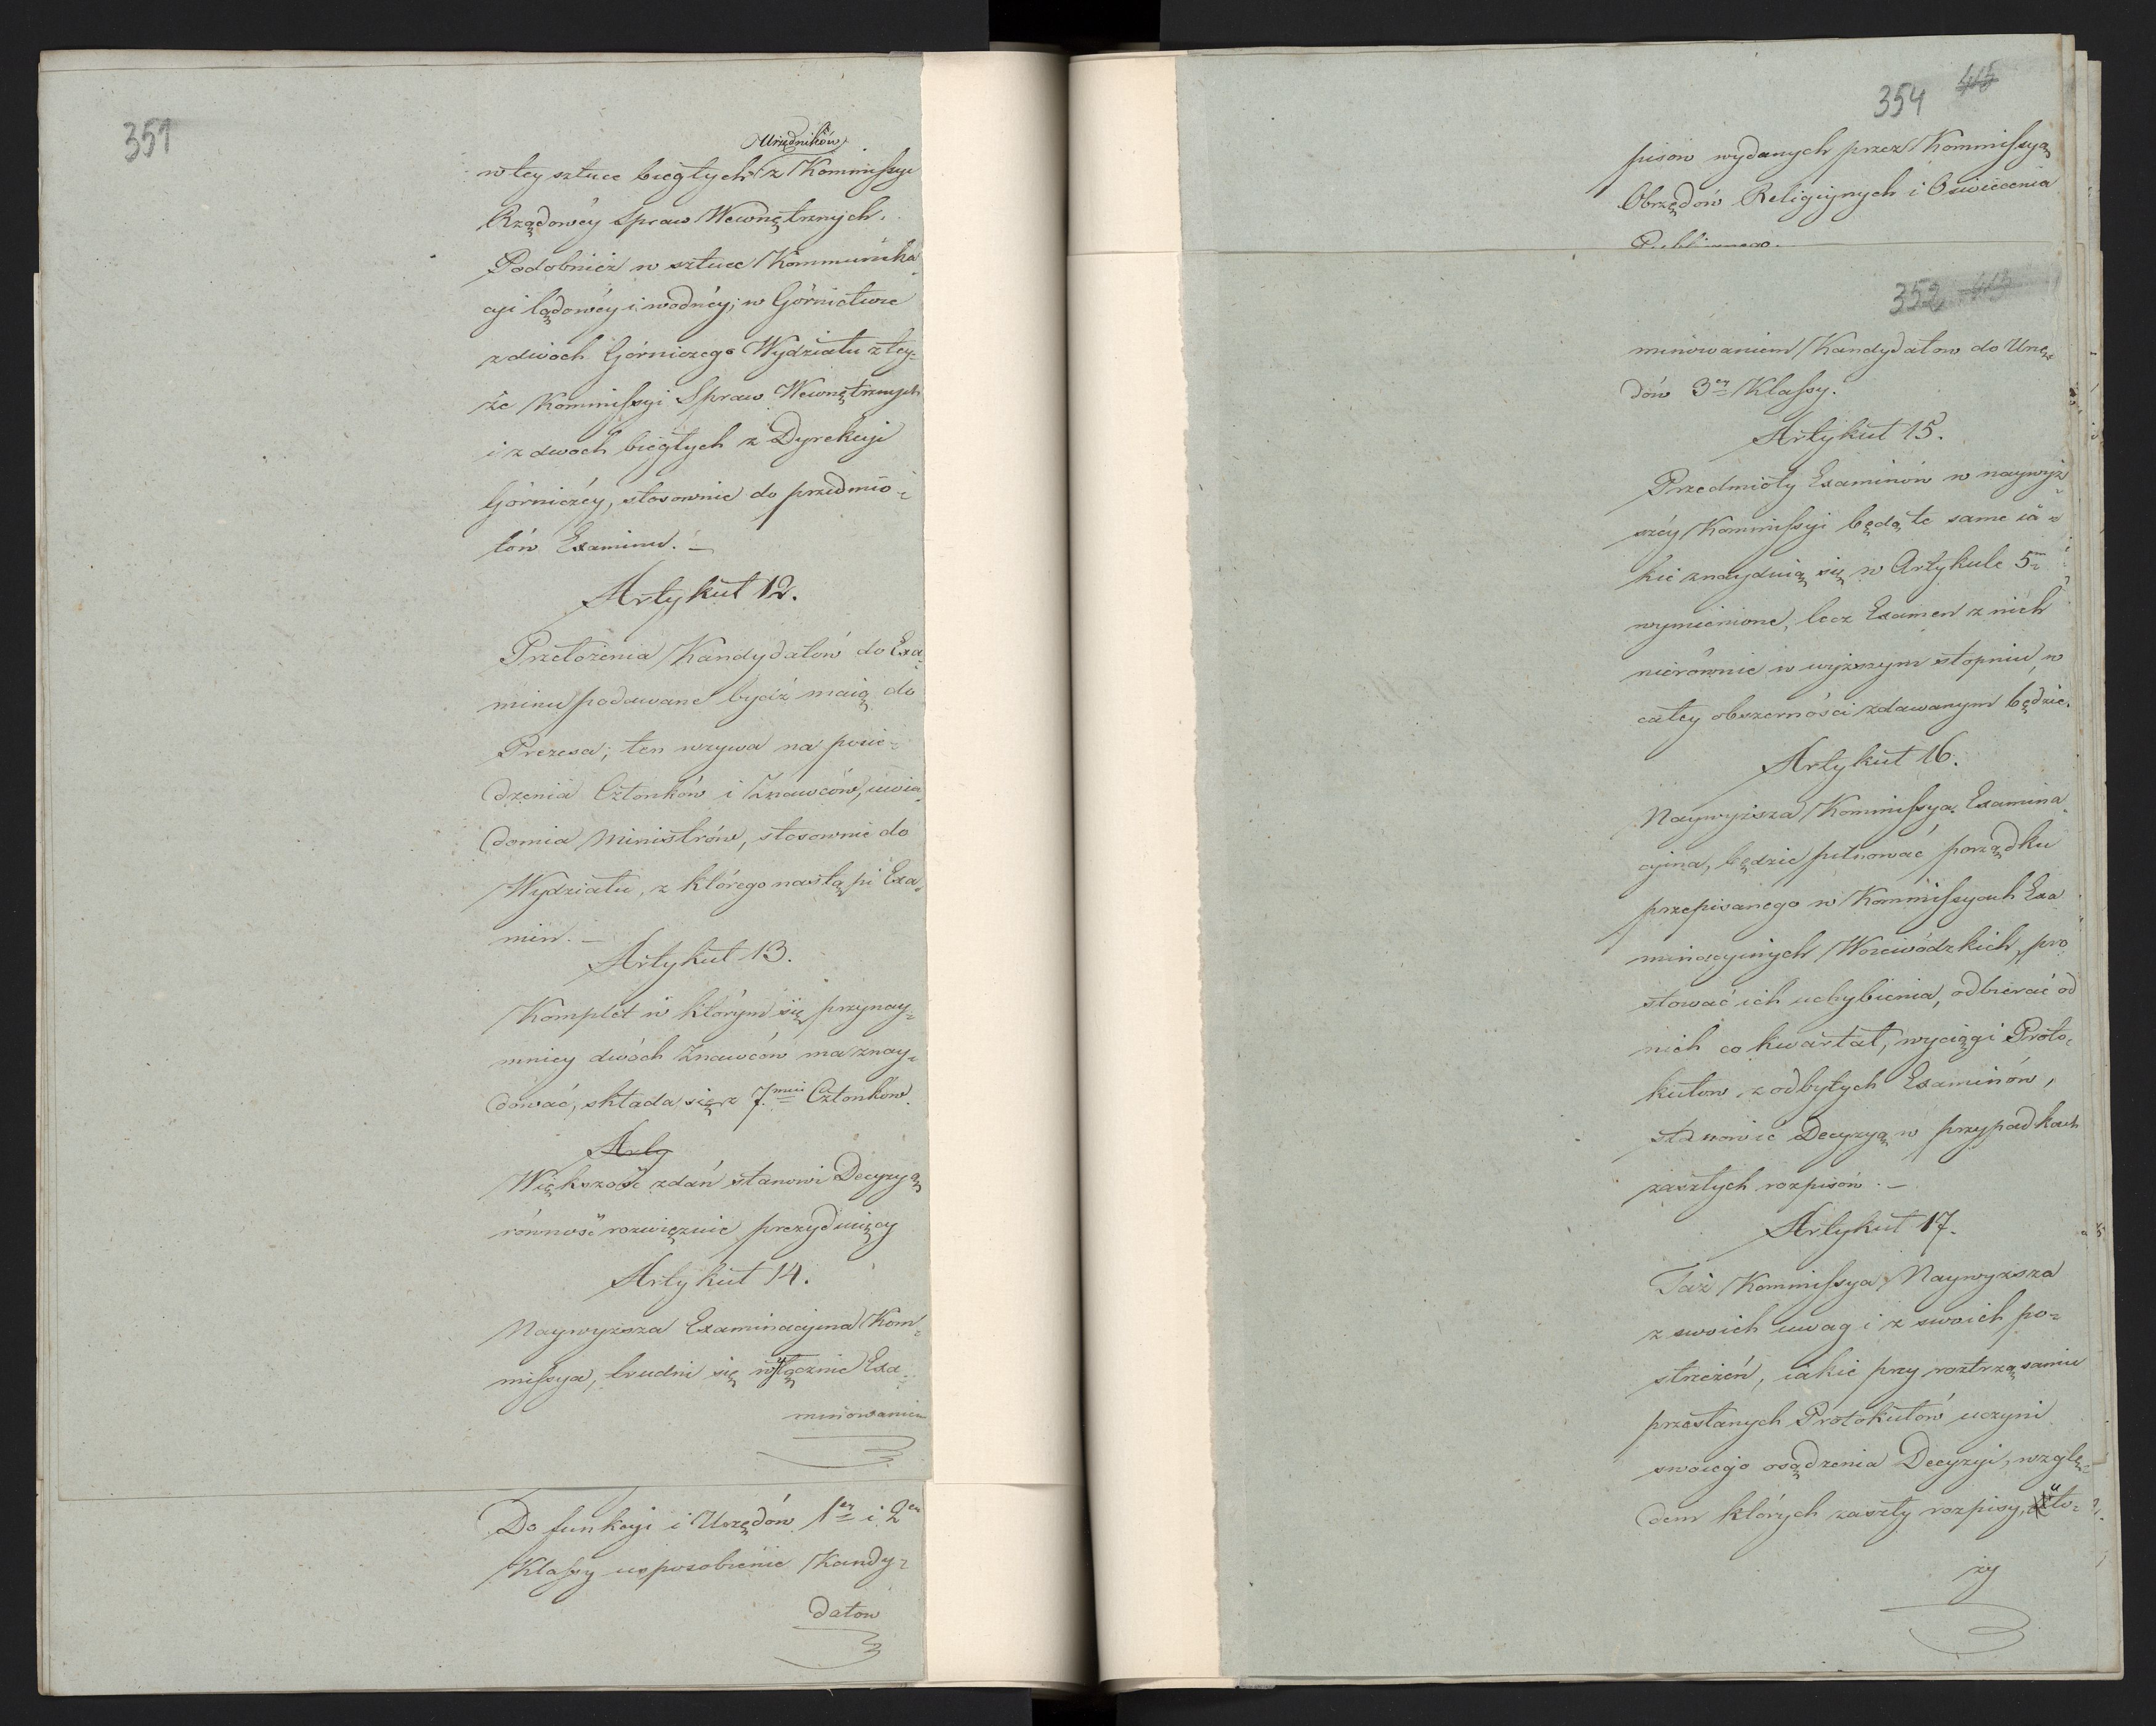 351
Urzędników
w tey sztuce biegłych z Kommissyi
Rządowéy Spraw Wewnętrznych.
Podobnież w sztuce Kommunika-
cyi lądowéy i wodnéy; w Górnictwie
z dwóch Górniczego Wydziału z tey-
że Kommissyi Spraw Wewnętrznych
i z dwoch biegłych z Dyrekcyi
Górniczéy, stosownie do przedmio-
tów Examinu. —
Artykuł 12.
Przełożenia Kandydatów do Exa-
minu podawane bydź maią do
Prezesa; ten wzywa na posie-
dzenia Członków i Znawców, uwia-
domia Ministrów, stosownie do
Wydziału, z którego nastąpi Exa-
min. —
Artykuł 13.
Komplet w którym się przynay-
mniey dwóch Znawców ma znay-
dować, składa się z 7.miu Członków.
Arty
Większość zdań stanowi Decyzyą
równość rozwięzuie prezyduiący
Artykuł 14.
Naywyższa Examinacyina Kom-
missya, trudni się wyłącznie Exa-
minowaniem
Do funkcyi i Urzędów 1ey i 2ey
Klassy usposobienie Kandy-
datow
354 415
pisow wydanych przez Kommissyą
Obrzędów Religiynych i Oswiecenia
Publicznego.
352 413
minowaniem Kandydatow do Urzę-
dów 3ey Klassy.
Artykuł 15.
Przedmioty Examinów w naywyż-
széy Kommissyi będą te same ia-
kie znayduią się w Artykule 5m
wymienione, lecz Examen z nich
nierównie w wyższym stopniu, w
całey obszerności zdawanym będzie.
Artykuł 16.
Naywyższa Kommissya Examina-
cyina, będzie pilnować porządku
przepisanego w Kommissyach Exa
minacyinych Woiewódzkich, pro
stować ich uchybienia, odbierać od
nich co kwartał, wyciągi Proto-
kułow, z odbytych Examinów,
stanowić Decyzyą w przypadkach
zaszłych rozpisów. —
Artykuł 17.
Taż Kommissya Naywyższa
z swoich uwag i z swoich po-
strzeżeń, iakie przy roztrząsaniu
przesłanych Protokułów uczyni
swoiego osądzenia Decyzyi, wzglę-
dem których zaszły rozpisy, uło-
ży